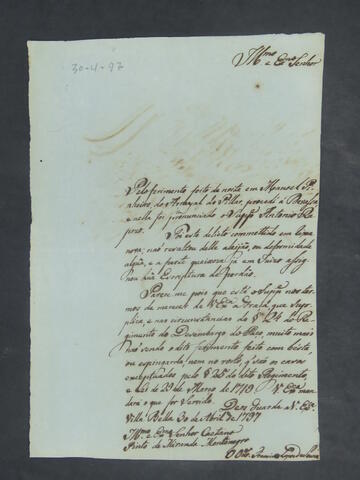 30-4-97
Illmo e Exmo Senhor
Pelo ferimento feito de noite em Manoel Pi-
nheiro, do Arrayal do Pillar, procedi á Devassa,
e nella foi pronunciado o Suppe Antonio
Foi este delicto commettido em
nova; não resultou delle aleijão, ou deformidade
algũa, e a parte queixosa já em Juizo assig-
nou hũa Escreptura de perdão.
Parece me pois que está o Suppe nos ter-
mos de merecer de V. Exa a Graça que Sup-
plica, e nas circunstancias do § 24 do Re-
gimento do Desembargo do Paço, muito mais
não sendo o dito ferimento feito com bésta,
ou espingarda, nem no rosto, q' são os cazos
exceptuados pelo § do dito Regimento,
e Lei de de Março de 1719 V. Exa man-
dará o que for Servido.
Deos Guarde a V. Exa
Villa Bella 30 de Abril de 1797
Illmo e Exmo Senhor Caetano
Pinto de Miranda Montenegro